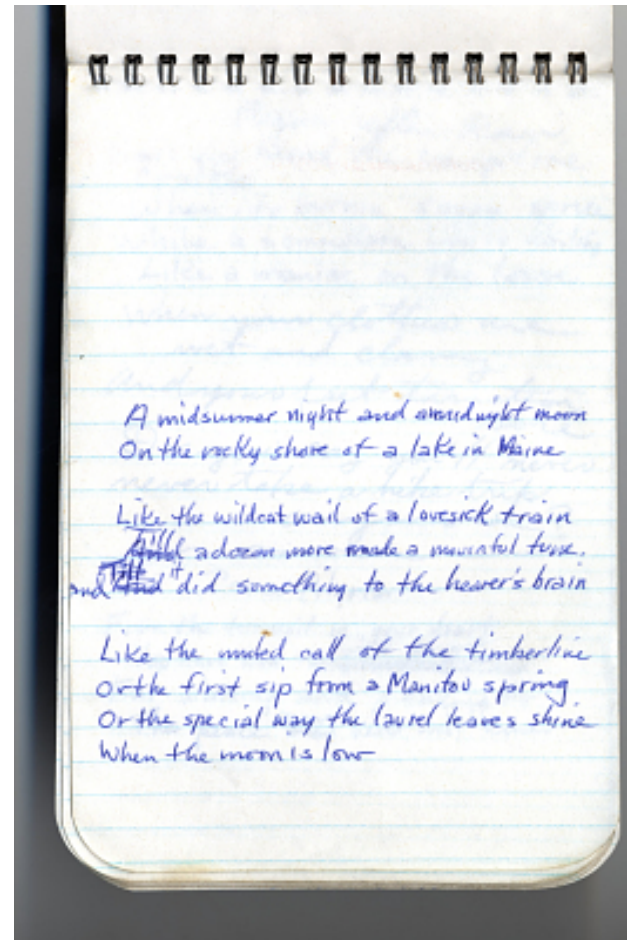 A midsummer night and a midnight moon
On the rocky shore of a lake in Maine
Like the wildcat wail of a lovesick train
Till a dozen more made a mournful tune.
and it did something to the hearer's brain
Like the muted call of the timberline
Or the first sip from a Manitou spring
Or the special way the laurel leaves shine
When the moon is low